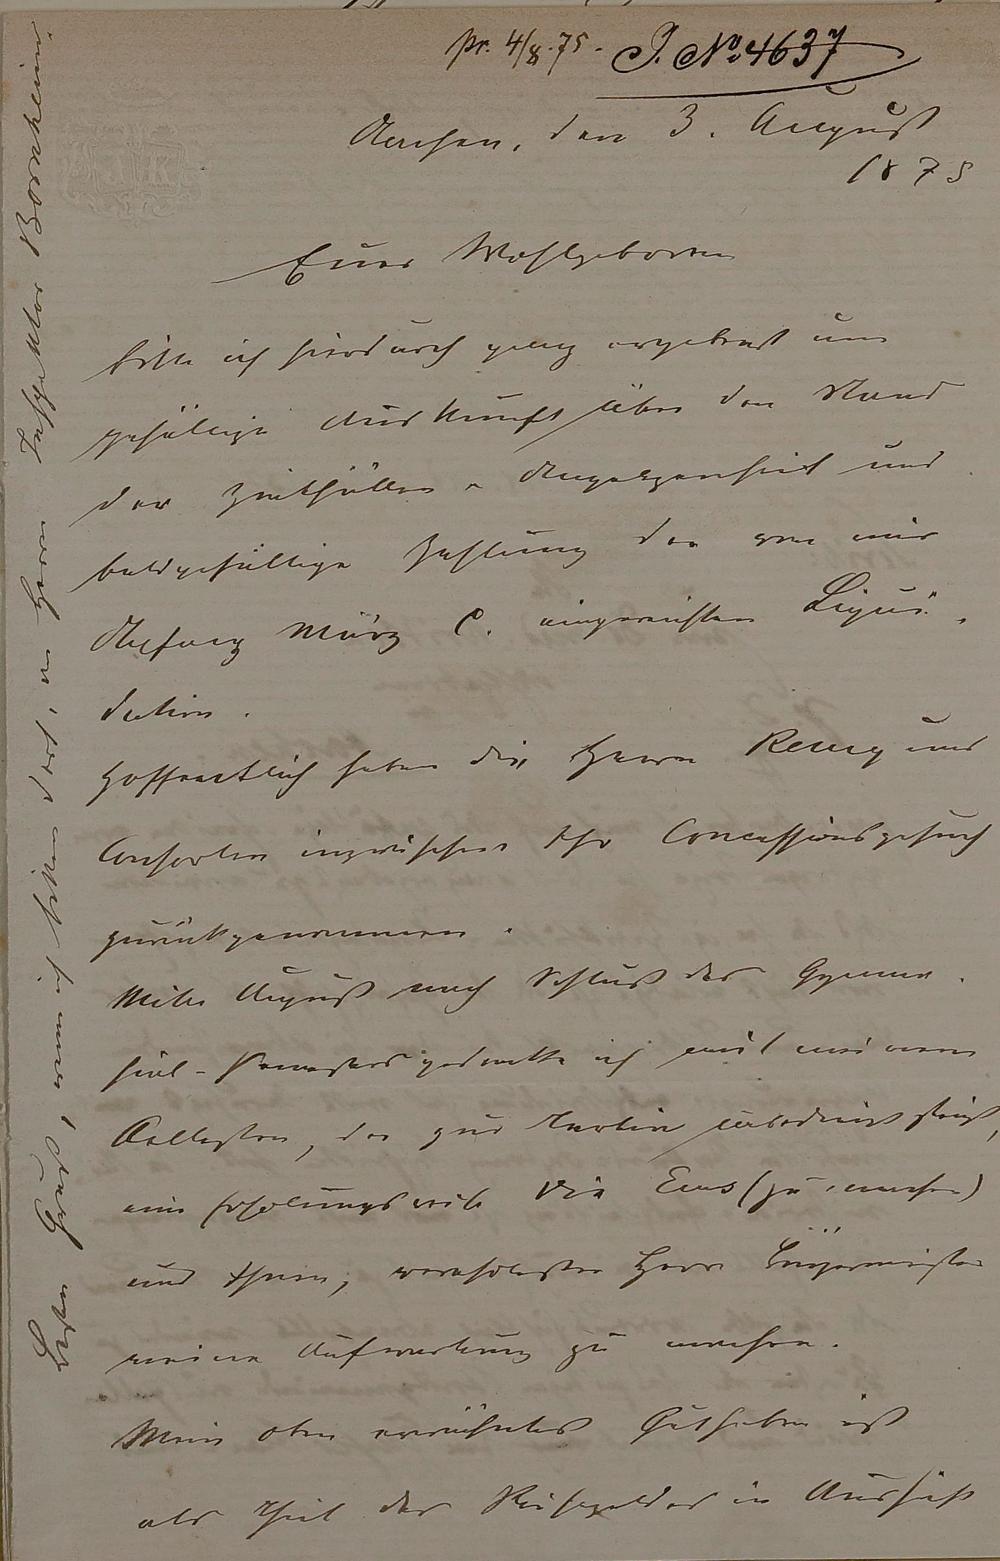 pr. 4/8.75. J. No. 4637
Aachen, den 3. August
1875
Euer Wohlgeboren
bitte ich hierdurch ganz ergebenst um
gefällige Auskunft über den Stand
der Angelegenheit und
baldgefällige Zahlung der von mir
Anfang März c. eingereichten Liqui-
dation.
Hoffentlich haben die Herren Remy und
Consorten inzwischen Ihr Concessionsgesuch
zurückgenommen.
Mitte August nach Schluß des Gymna-
sial-Semesters gedenke ich mit meinem
Aeltesten, der zur steigt,
eine Erholungsreise via Ems (zu machen)
und Ihnen, verehrtester Herr Bürgermeister
meine Aufwartung zu machen.
Mein oben erwähntes Guthaben ist
als Theil des Reisegeldes in Aussicht
Besten Gruß, wenn ich bitten darf, an Herrn Inspektor Bornheim.